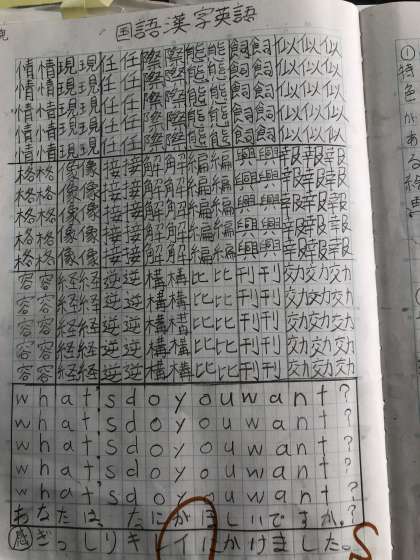 国語漢字英語
情情現現任任際際能能飼飼似似似
情情現現任任際際能能飼飼似似似
情情現現任任際際能能飼飼似似似
情情現現任任際際能能飼飼似似似
情情現現任任際際能能飼飼似似似
格格象像接接解解編編興興報報報
格格像像接接解解編編興興報報報
格格像像接接解解編編興興報報報
格格像像接接解解編編興興報報報
格格像像接接解解編編興興報報報
容容経経逆逆構構比比刊刊効効効
容容経経逆逆構構比比刊刊効効効
容容経経逆逆構構比比刊刊効効効
容容経経逆逆構構比比刊刊効効効
容容経経逆逆構構比比刊刊効効効
what's do you want?
what's do you want?
what's do you want?
what's do you want?
what's do you want?
あなたは、なにがほしいですか。
感ぎっしりキレイにかけました。
①特色がある